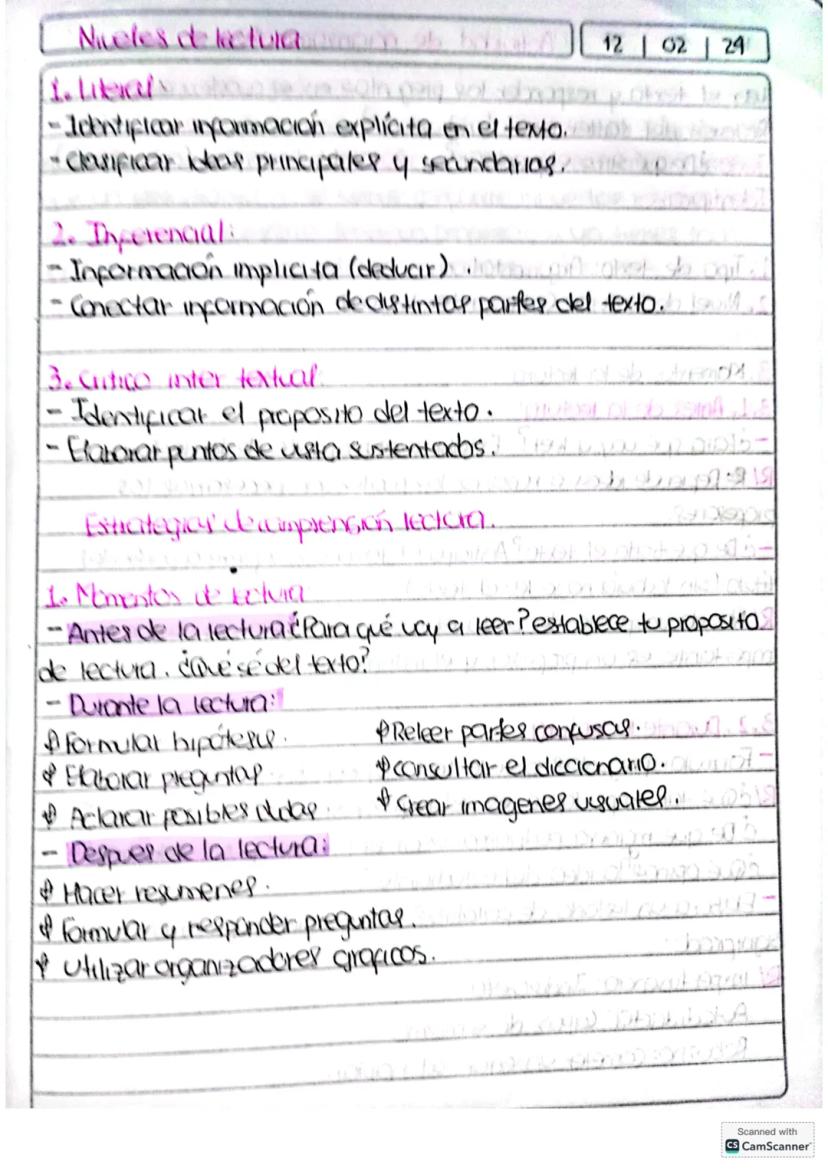 Niveles de lectura
12 | 02 | 24
1. Literal
- Identificar información explícita en el texto.
- Clasificar ideas principales y secundarias.
2. Inferencial:
- Información implicita (deducir).
- Conectar información de distintas partes del texto.
3. Critico inter textual.
- Identificar el proposito del texto.
- Elaborar puntos de vista sustentados.
Estrategias de comprensión lectura.
1. Momentos de lectura
- Antes de la lectura ¿Para qué voy a leer? establece tu proposito
de lectura. ¿Qué sé del texto?
- Durante la lectura:
Formular hipótesis.
Elaborar preguntas
Aclarar posibles dudas.
Releer partes confusas.
consultar el diccionario.
Crear imagenes visuales.
- Despues de la lectura:
Hacer resumenes.
Formular y responder preguntas.
Utilizar organizadores graficos.
Scanned with
CS CamScanner